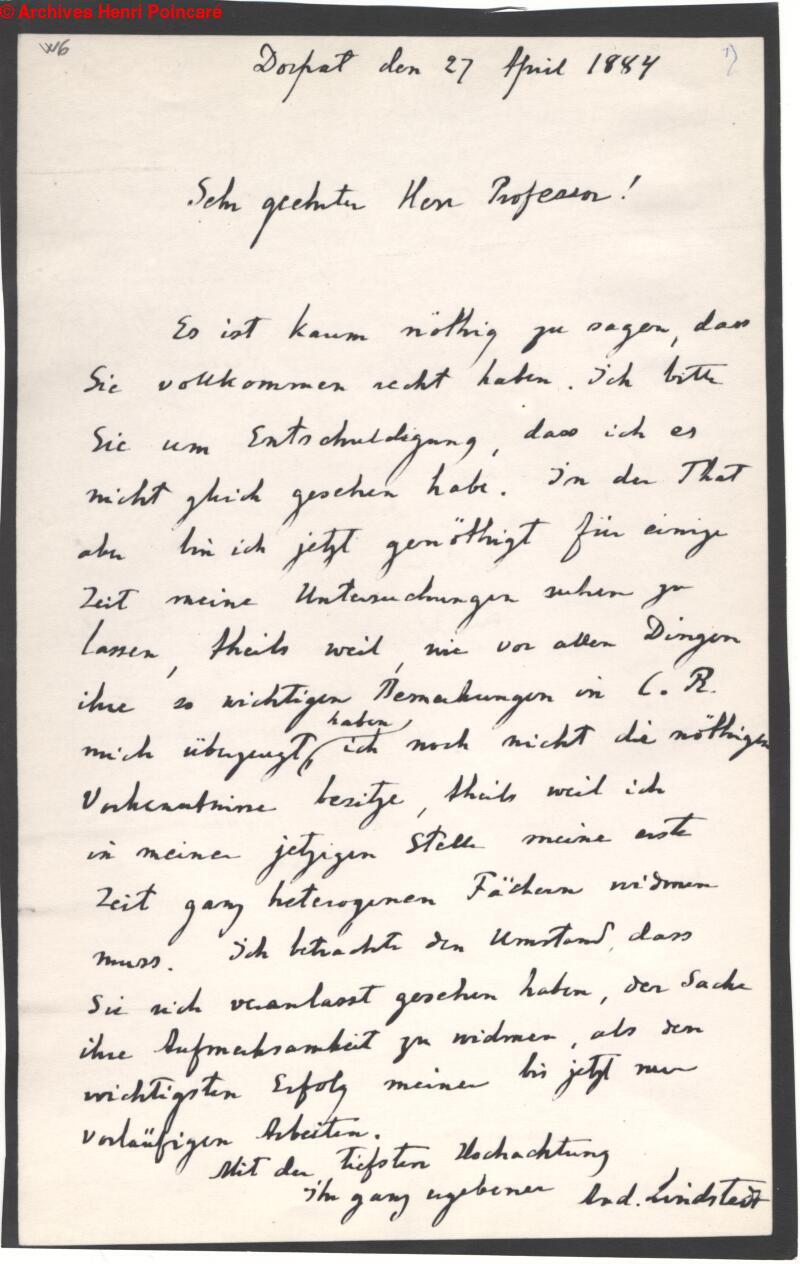 © Archives Henri Poincaré
W6
1)
Dorpat den 27 April 1884
Sehr geehrter Herr Professor!
Es ist kaum nöthig zu sagen, dass
Sie vollkommen recht haben. Ich bitte
Sie um Entschuldigung, dass ich es
nicht gleich gesehen habe. In der That
aber bin ich jetzt genöthigt für einige
Zeit meine Untersuchungen ruhen zu
lassen, theils weil, wie vor allen Dingen
ihre so wichtigen Bemerkungen in C. R.
mich überzeugt haben, ich noch nicht die nöthigen
Vorkenntnisse besitze, theils weil ich
in meiner jetzigen Stelle meine erste
Zeit ganz heterogenen Fächern widmen
muss. Ich betrachte den Umstand, dass
Sie sich veranlasst gesehen haben, der Sache
ihre Aufmerksamkeit zu widmen, als den
wichtigsten Erfolg meiner bis jetzt nur
vorläufigen Arbeiten.
Mit der tiefsten Hochachtung
ihr ganz ergebener And. Lindstedt